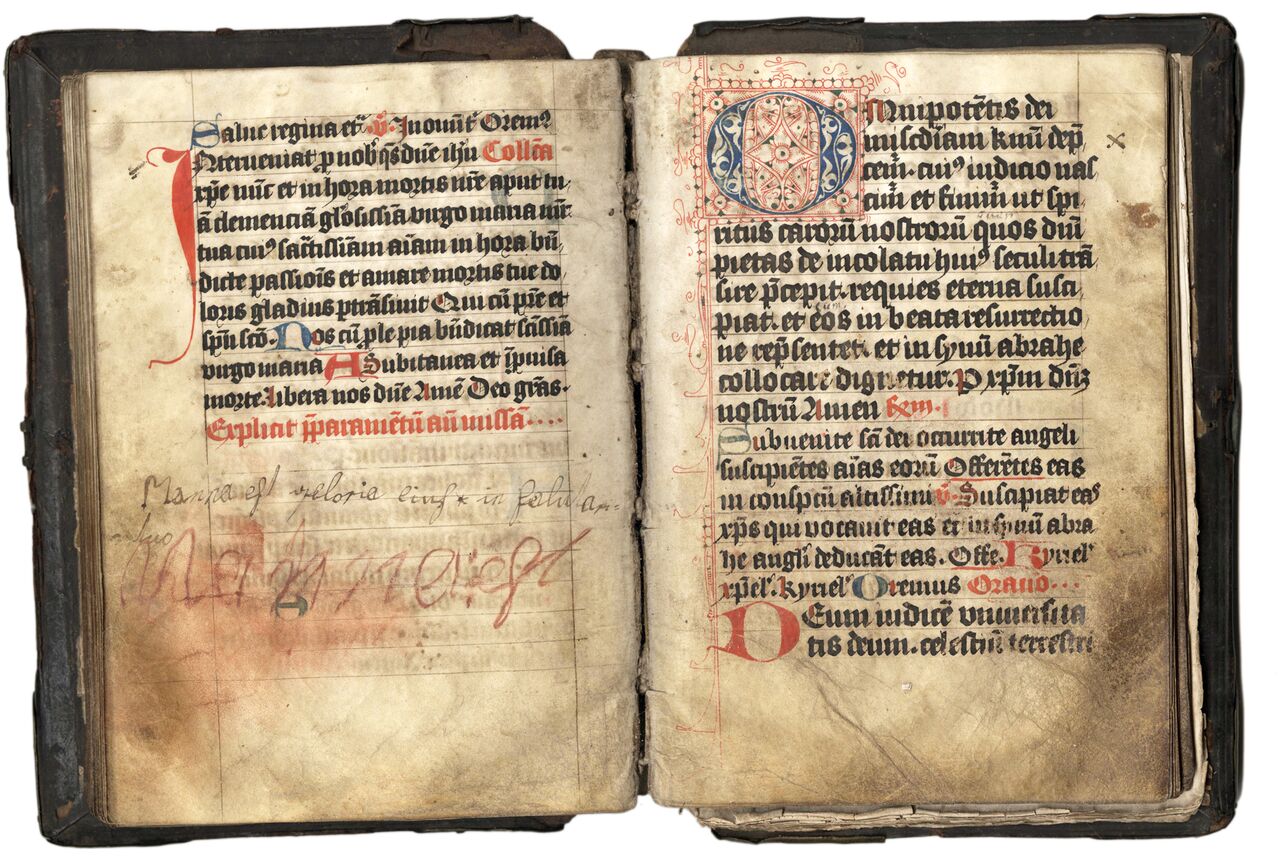 Salue regina etc̄. v̄. In omni t̄ Orem9
Interueniat p nob̄ q̄s dn̄e ih̄u Collc̄a
xp̄e nūc et in hora mortis nr̄e aput tu
ā clemenciā gl'osissīa virgo maria mr̄
tua cui9 sāctissīam aīam in hora bn̄
dicte passiōis et amare mortis tue do
loris gladius ptrāsiuit Qui cū pr̄e et
sp̄u sc̄o. Nos cū ple pia bn̄dicat sc̄issīa
virgo maria A Subitanea et īprouisa
morte. libera nos dn̄e Amē Deo grās.
Explicit pparamētū ad missā....
Manna est in
Manna est
Omnipotētis dei
mīsc̄diam kmī dep̄
cem̄. cui9 iudicio nas
cim̄ et finim̄ ut spi
ritus carorū nostrorū quos dn̄i
pietas de incolatu hui9 seculi trā
sire p̄cepit. requies eterna susci
piat. et eos in beata resurrectio
ne rep̄sentet. et in synū abrahe
collocare dignetur. P xp̄m dn̄z
nostrū Amen
Subuenite sc̄i dei occurrite angeli
suscipiētes aīas eorū Offerētes eas
in conspc̄u altissimi v̄. Suscipiat eas
xp̄s qui vocauit eas et in synū abra
he angl'i deducāt eas. Offe. Kyriel'
xp̄el'. kyriel' Oremus Oratio...
Deum iudicē vniuersita
tis deum. celestiū terrestri